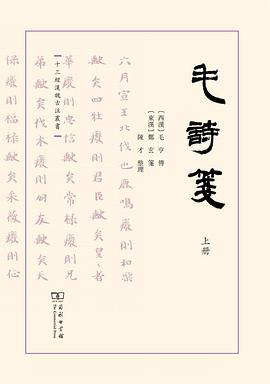 毛詩箋
上册
[西漢] 毛 亨 傳
[東漢] 鄭 玄 箋
陳 才 整理
六月宣王北伐也鹿鳴廢則和樂
缺矣四牡廢則君臣缺矣皇〻者
華廢則忠信缺矣常棣廢則兄
弟缺矣伐木廢則朋友缺矣天
保廢則福祿缺矣采薇廢則征
十三經漢魏古注叢書
商務印書館
The Commercial Press